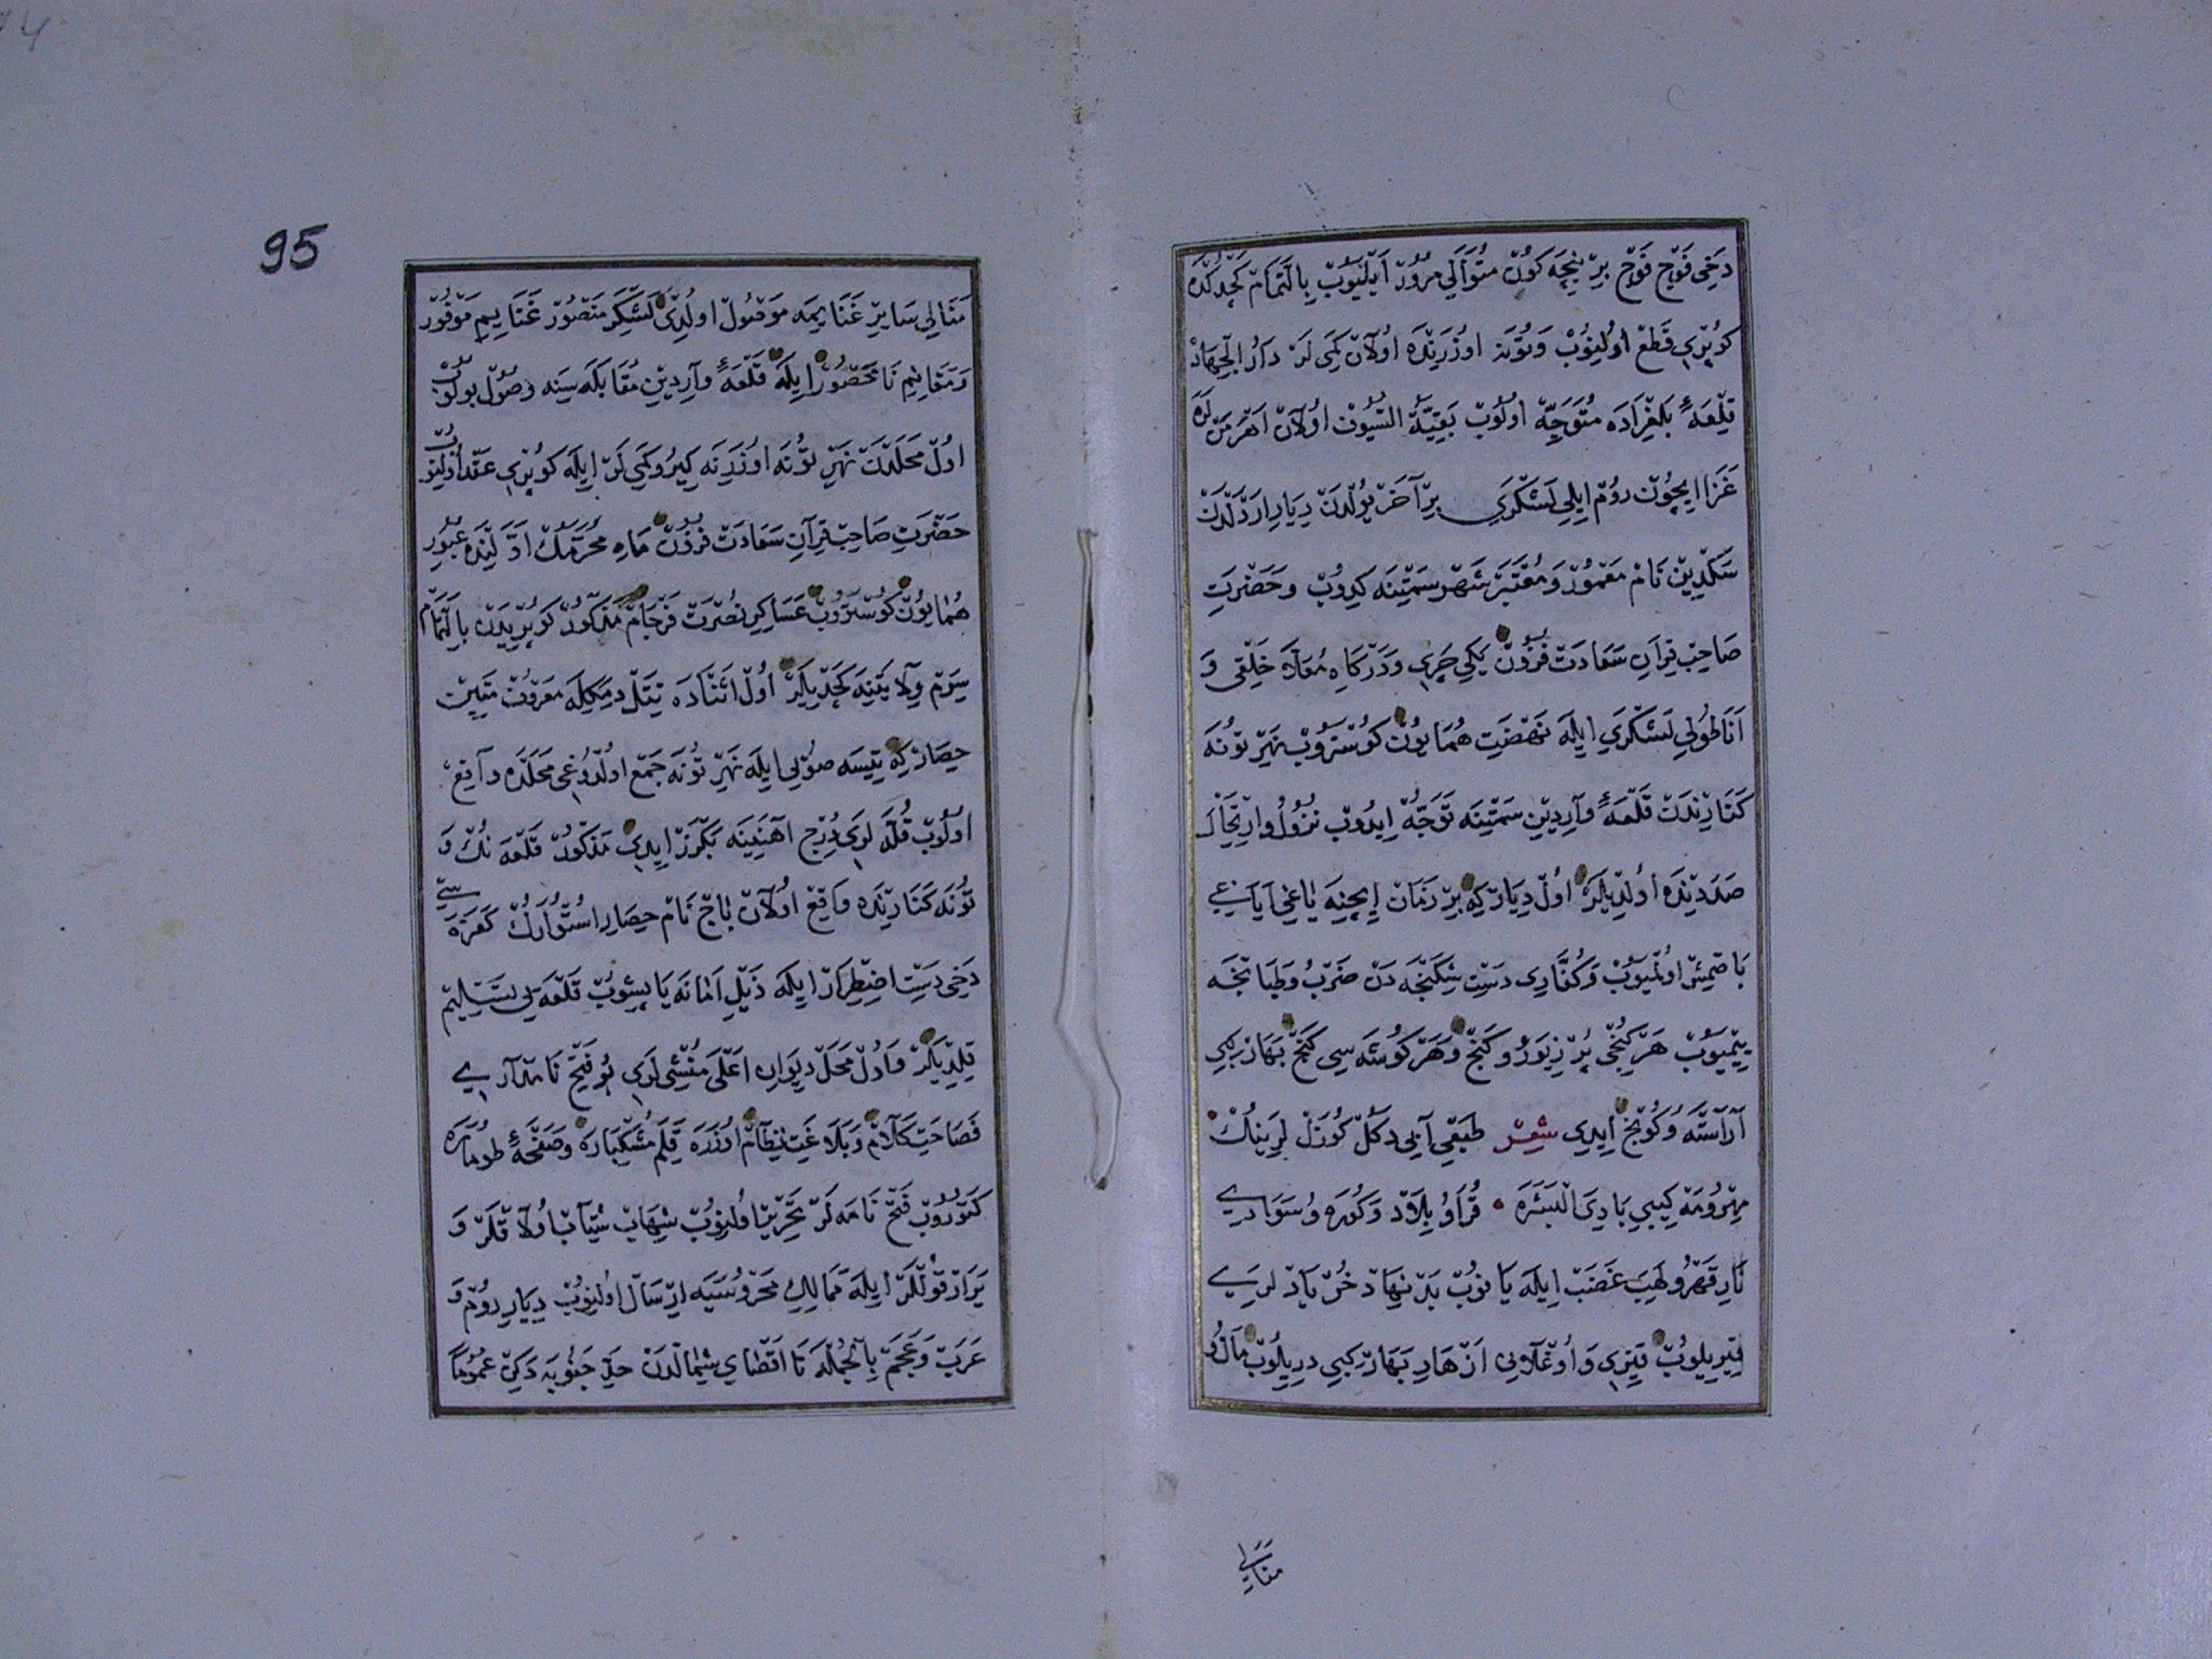 دَخِى فَوْج فَوْج بِرْ نِيچَه كُونْ مُتَوَالِى مُرُورْ اَيْلَيُوبْ بِالتَّمَامْ كَچْدُكْدَه
كُوپْرِى قَطْعْ اُولِنُوبْ وَتُونَه اوُزَرِنْدَه اُولَانْ كَمِى لَرْ دَارُ الْجِهَادْ
قَلْعَهٔ بَلِغْرَادَه مُتَوَجِّهْ اُولُوبْ بَقِيَّةُ السُّيُوفْ اُولَانْ اَهْرَمَنْ لَرَه
غَزَا اِيچُونْ رُومْ اِيلِى لَشْكَرِى بِرْ آخَرْ يُولْدَنْ دِيَارِ اَرْدَلْدَنْ
سَكَدِينْ نَامْ مَعْمُورْ وَمُعْتَبَرْ شَهْر سَمْتِينَه كِيرُوبْ وَحَضْرَتِ
صَاحِبْ قِرَانِ سَعَادَتْ فُزُونْ يَكِى چَرِى وَدَرْكَاهِ مُعَلَّا خَلْقِى وَ
اَنَاطُولِى لَشْكَرِى اِيلَه نَهْضَتِ هُمَايُونْ كُوسْتَرُوبْ نَهْرِ تُونَه
كَنَارِنْدَنْ قَلْعَهٔ وَارِدِينْ سَمْتِينَه تَوَجُّهْ اِيدُوبْ نُزُولْ وَارْتِحَالْ
صَدَدِنْدَه اُولْدِيلَرْ اُولْ دِيَارْ كِه بِرْ زَمَانْ اِيچِنَه يَاغِى اَيَاغِى
بَاصْمِشْ اُولْمَيُوبْ وَكُفَّارِى دَسْتِ شِكَنْجَه دَنْ ضَرْبْ وَطَبَانْجَه
يِيمَيُوبْ هَرْ كُنْجِى پُرْ زِيوَرْ وَكَنْجْ وَهَرْ كُوشَه سِى كَنْجِ بَهَارْ كِبِى
آرَاسْتَه وَكُونَجْ اِيدِى شِعْر طَبَقِى آيِى دَكُلْ كُوزَلْ لَرِينُكْ
مِهْرُ ومَهْ كِيبِى بَادِىَ الْبَشَرَه قُرَا وُ بِلَادْ وَكُورَه وُسَوَادِى
نَارِ قَهْرُ ولَهِبِ غَضَبْ اِيلَه يَانُوبْ بَدْ نِهَادْ خُرْيَادْ لَرِى
قِيرِيلُوبْ قِيزِى وَاُوغْلَانِى اَزْهَارِ بَهَارْ كِبِى دِيرِيلُوبْ مَالُ و
مَنَالِى
95
مَنَالِى سَايِرْ غَنَايِمَه مَوْصُولْ اُولْدِى لَشْكَرِ مَنْصُورْ غَنَايِمِ مَوْفُورْ
وَمَغَانِيمِ نَامَحْصُورْ اِيلَه قَلْعَهٔ وَارِدِينْ مُقَابَلَه سِنَه وُصُولْ بُولُوبْ
اُولْ مَحَلْدَنْ نَهْرِ تُونَه اوُزَرِنَه كِيرُو كَمِى لَرْ اِيلَه كُوپْرِى عَقْدْ اُولِنُوبْ
حَضْرَتِ صَاحِبْ قِرَانِ سَعَادَتْ فُزُونْ مَاهِ مُحَرَّمُكْ اَوَّلِنْدَه عُبُورِ
هُمَايُونْ كُوسْتَرُوبْ عَسَاكِرِ نُصْرَتْ فَرْجَامْ مَذْكُورْ كُوپْرِيدَنْ بِالتَّمَامْ
سِيرَمْ وِلَايَتِنَه كَچْدِيلَرْ اُولْ اَثْنَادَه تِتَلْ دِمَكِلَه مَعْرُوفْ مَتِينْ
حِصَارْ كِه تِيسَه صُولِى اِيلَه نَهْرِ تُونَه جَمْعْ اُولْدُوغِى مَحَلْدَه وَاقِعْ
اُولُوبْ قُلَّه لَرِى بُرْجِ آهَنِينَه بَكْزَرْ اِيدِى مَذْكُورْ قَلْعَه نُكْ وَ
تُونَه كَنَارِنْدَه وَاقِعْ اُولَانْ نَامْ حِصَارِ اُسْتُوارُكْ كَفَرَه سِى
دَخِى دَسْتِ اضْطِرَارْ اِيلَه ذَيْلِ اَمَانَه يَاپِشُوبْ قَلْعَه يِى تَسْلِيمْ
قِيلْدِيلَرْ وَاُولْ مَحَلْ دِيوَانِ اَعْلَى مُنْشِى لَرِى بُو فَتْحِ نَامْدَارِى
فَصَاحَتْ كَلَامْ وَبَلَاغَتْ نِظَامْ اوُزَرَه قَلَمِ مُشْكْبَارَه وَصَفْحَهٔ طُومَارَه
كَتُورُوبْ فَتْحْ نَامَه لَرْ تَحْرِيرْ اُولِنُوبْ شِهَابْ شِتَابْ اُولَاقْلَرْ وَ
يَرَارْ قُوللَّرْ اِيلَه مَمَالِكِ مَحْرُوسَيَه اِرْسَالْ اُولِنُوبْ دِيَارِ رُومْ وَ
عَرَبْ وَعَجَمْ بِالْجُمْلَه تَا اَقْصَاىِ شِمَالْدَنْ حَدِّ جَنُوبَه دَكِينْ عُمُومًا